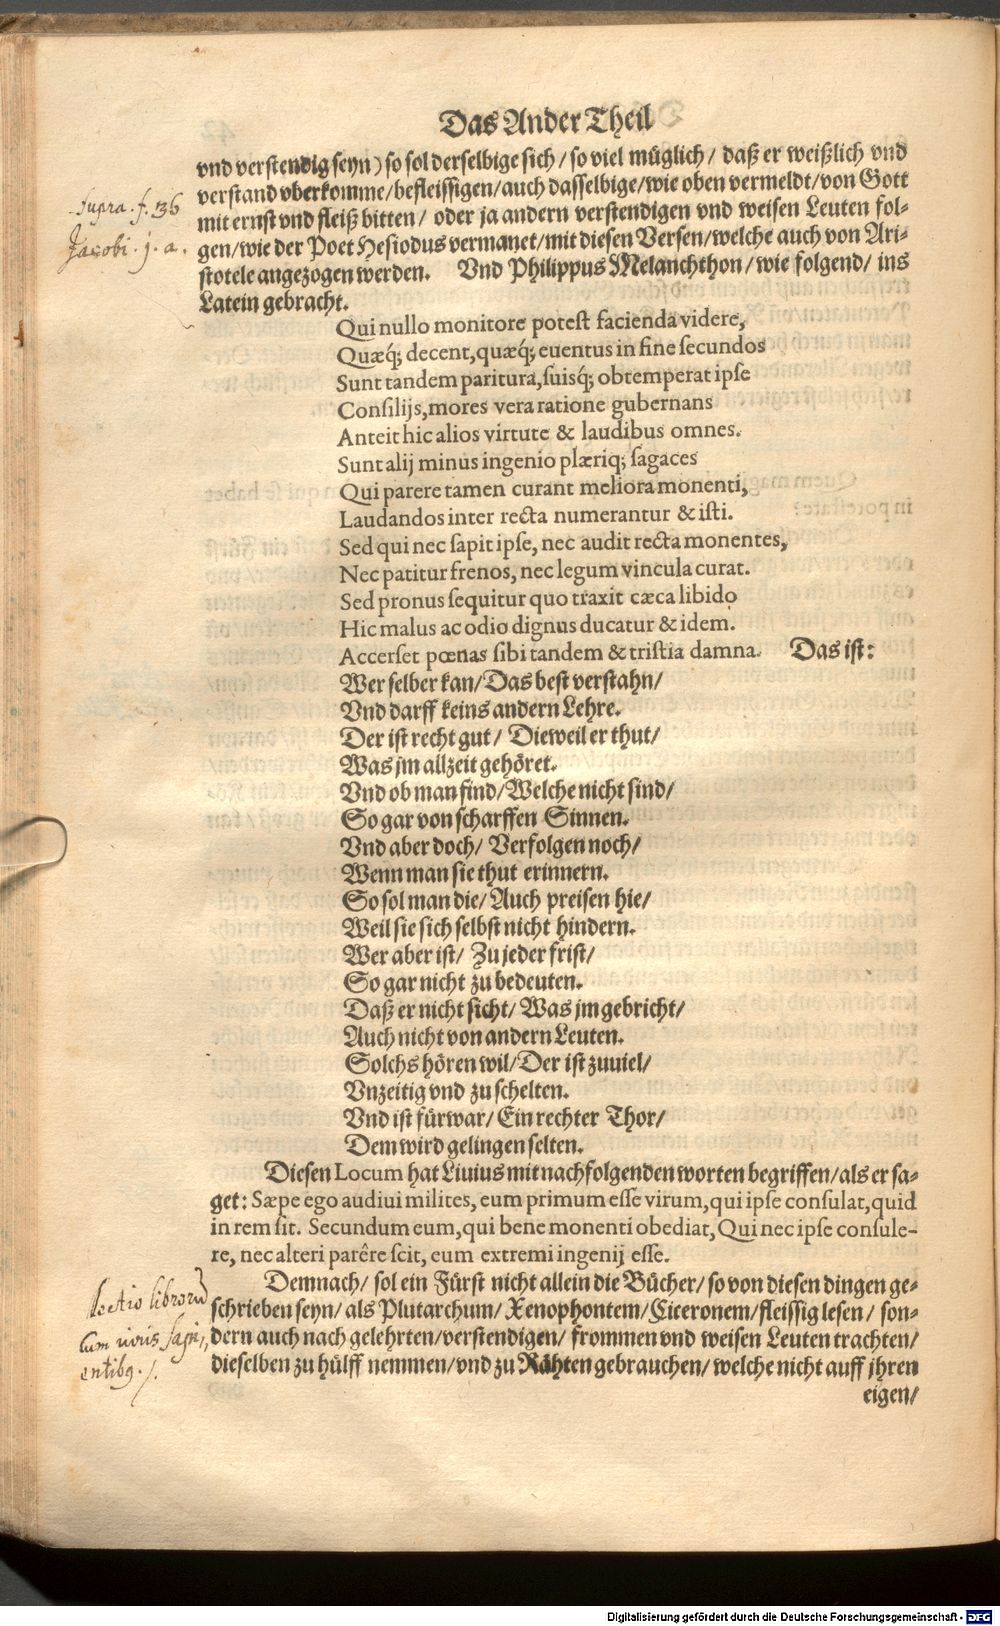 Das Ander Theil
vnd verstendig seyn) so sol derselbige sich / so viel müglich / daß er weißlich vnd
verstand vberkomme / befleissigen / auch dasselbige / wie oben vermeldt / von Gott
mit ernst vnd fleiß bitten / oder ja andern verstendigen vnd weisen Leuten fol-
gen / wie der Poet Hesiodus vermanet / mit diesen Versen / welche auch von Ari-
stotele angezogen werden. Vnd Philippus Melanchthon / wie folgend / ins
Latein gebracht.
supra . f. 136
Jacobi . j . a .
Qui nullo monitore potest facienda videre,
Quæq́; decent, quæq́; euentus in fine secundos
Sunt tandem paritura, suisq́; obtemperat ipse
Consilijs, mores vera ratione gubernans
Anteit hic alios virtute & laudibus omnes.
Sunt alij minus ingenio plæriq; sagaces
Qui parere tamen curant meliora monenti,
Laudandos inter recta numerantur & isti.
Sed qui nec sapit ipse, nec audit recta monentes,
Nec patitur frenos, nec legum vincula curat.
Sed pronus sequitur quo traxit cæca libido
Hic malus ac odio dignus ducatur & idem.
Accerset pœnas sibi tandem & tristia damna. Das ist:
Wer selber kan / Das best verstahn /
Vnd darff keins andern Lehre.
Der ist recht gut / Dieweil er thut /
Was jm allzeit gehöret.
Vnd ob man find / Welche nicht sind /
So gar von scharffen Sinnen.
Vnd aber doch / Verfolgen noch /
Wenn man sie thut erinnern.
So sol man die / Auch preisen hie /
Weil sie sich selbst nicht hindern.
Wer aber ist / Zu jeder frist /
So gar nicht zu bedeuten.
Daß er nicht sicht / Was jm gebricht /
Auch nicht von andern Leuten.
Solchs hören wil / Der ist zuuiel /
Vnzeitig vnd zu schelten.
Vnd ist fürwar / Ein rechter Thor /
Dem wird gelingen selten.
Diesen Locum hat Liuius mit nachfolgenden worten begriffen / als er sa-
get: Sæpe ego audiui milites, eum primum esse virum, qui ipse consulat, quid
in rem sit. Secundum eum, qui bene monenti obediat, Qui nec ipse consule-
re, nec alteri parêre scit, eum extremi ingenij esse.
Demnach / sol ein Fürst nicht allein die Bücher / so von diesen dingen ge-
schrieben seyn / als Plutarchum / Xenophontem / Ciceronem / fleissig lesen / son-
dern auch nach gelehrten / verstendigen / frommen vnd weisen Leuten trachten /
dieselben zu hülff nemmen / vnd zu Rähten gebrauchen / welche nicht auff jhren
eigen /
Lectio librorū
cum viris sapi,
entibꝰ. /.
Digitalisierung gefördert durch die Deutsche Forschungsgemeinschaft - DFG